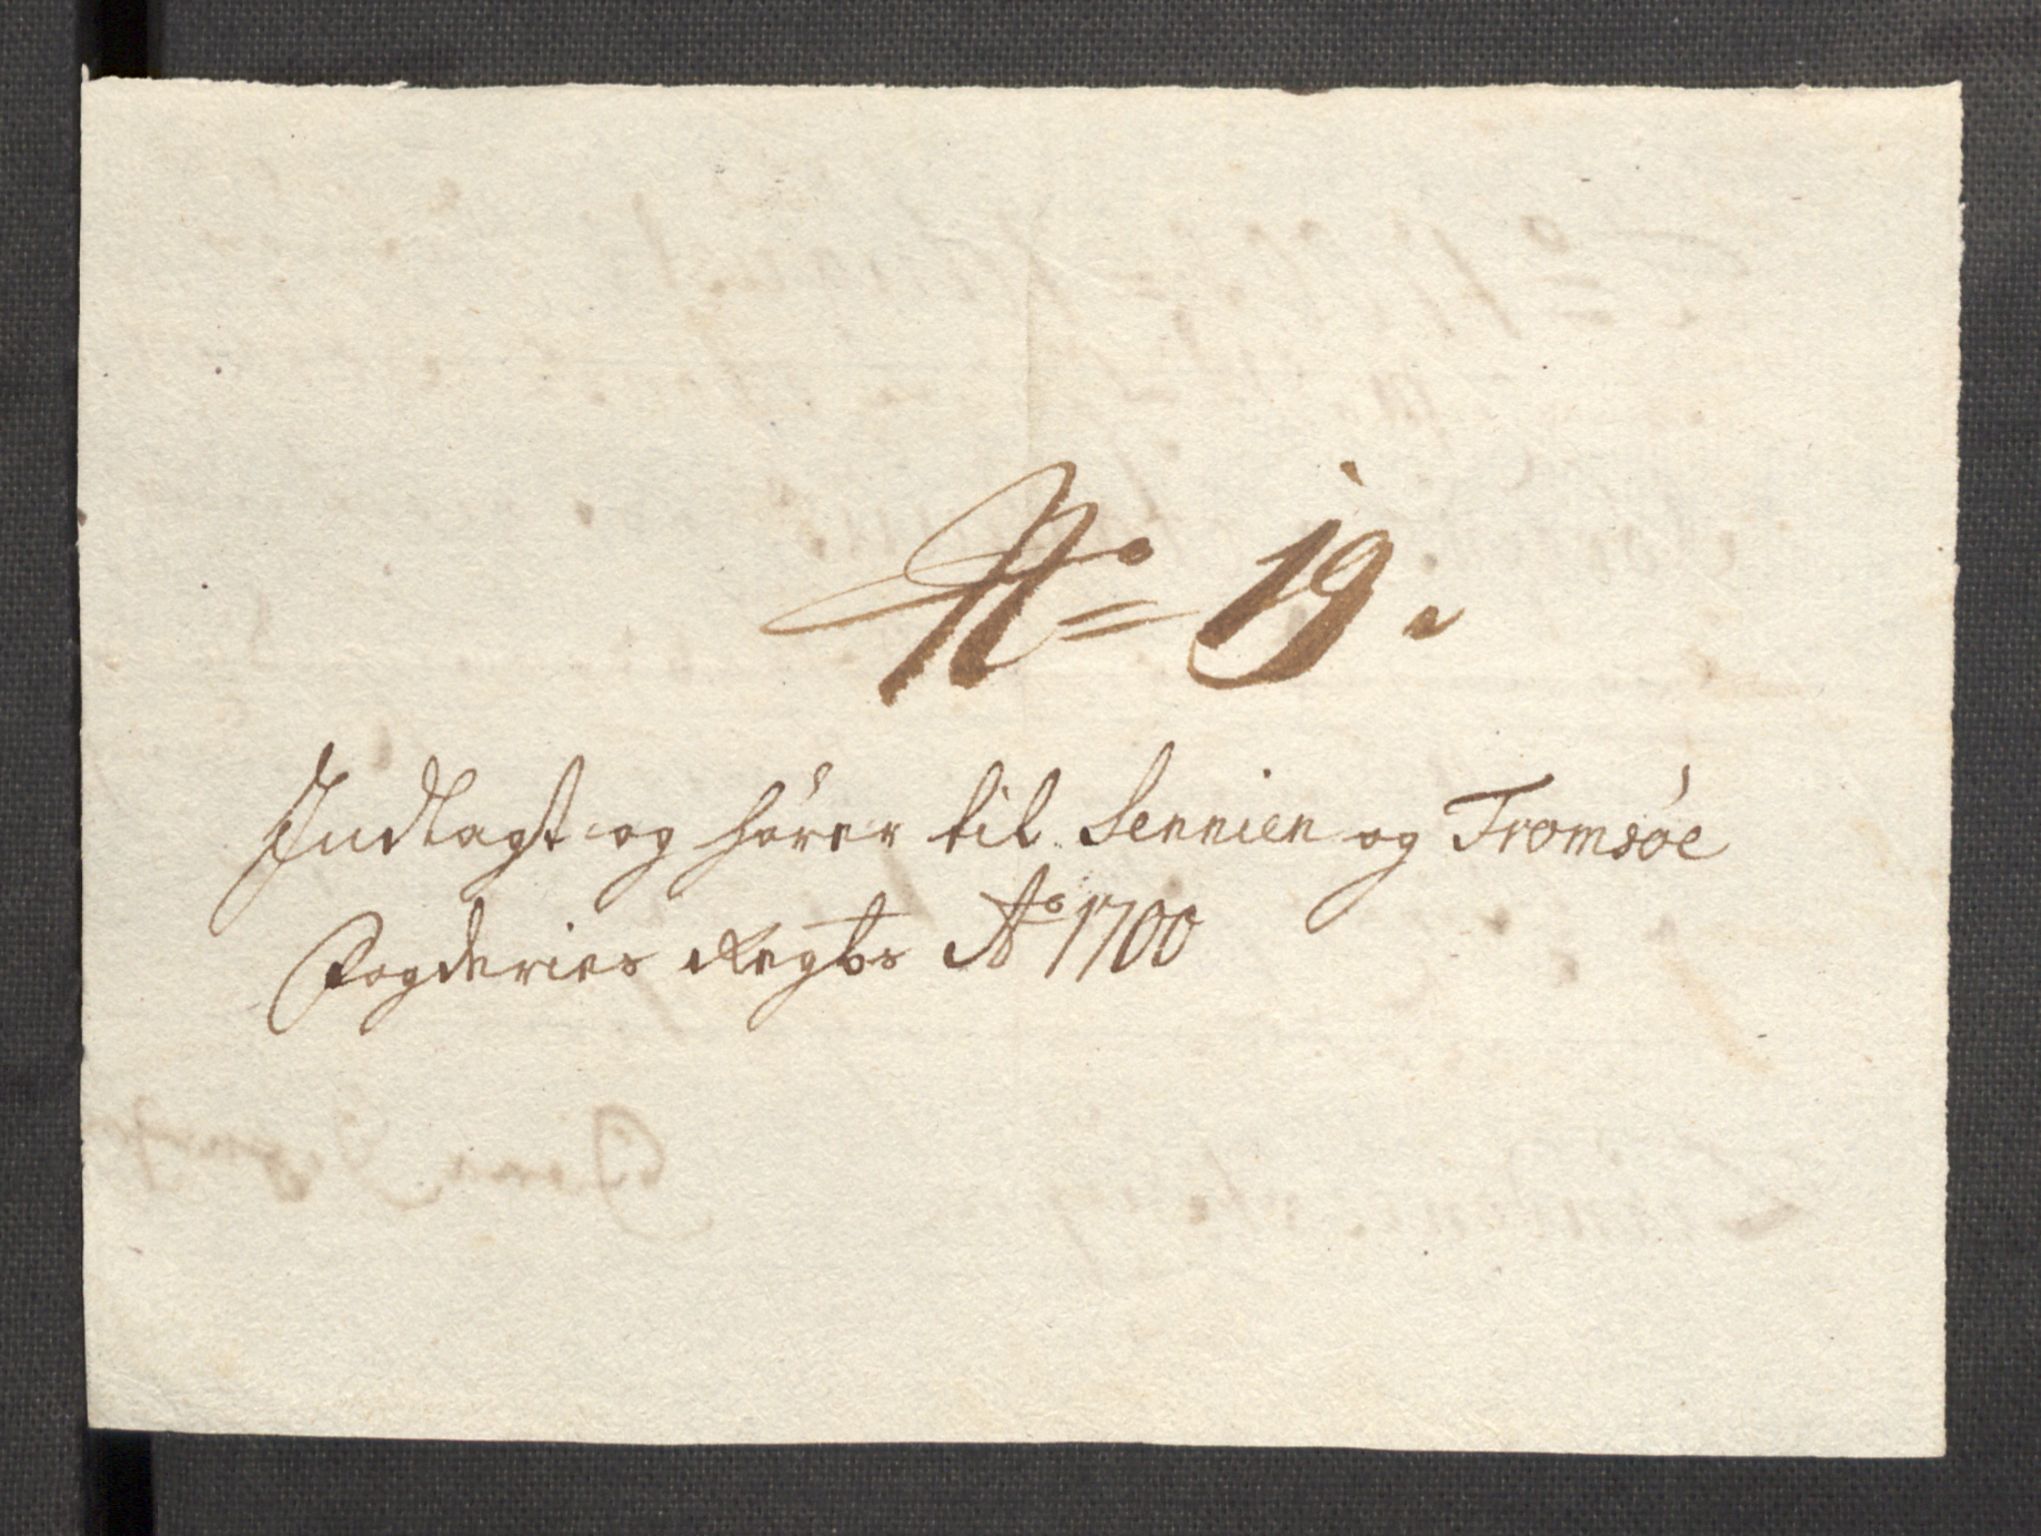 No 19.
Indlagt og hörer til Sennien og Tromsöe
Fogderies Regbs Ao 1700